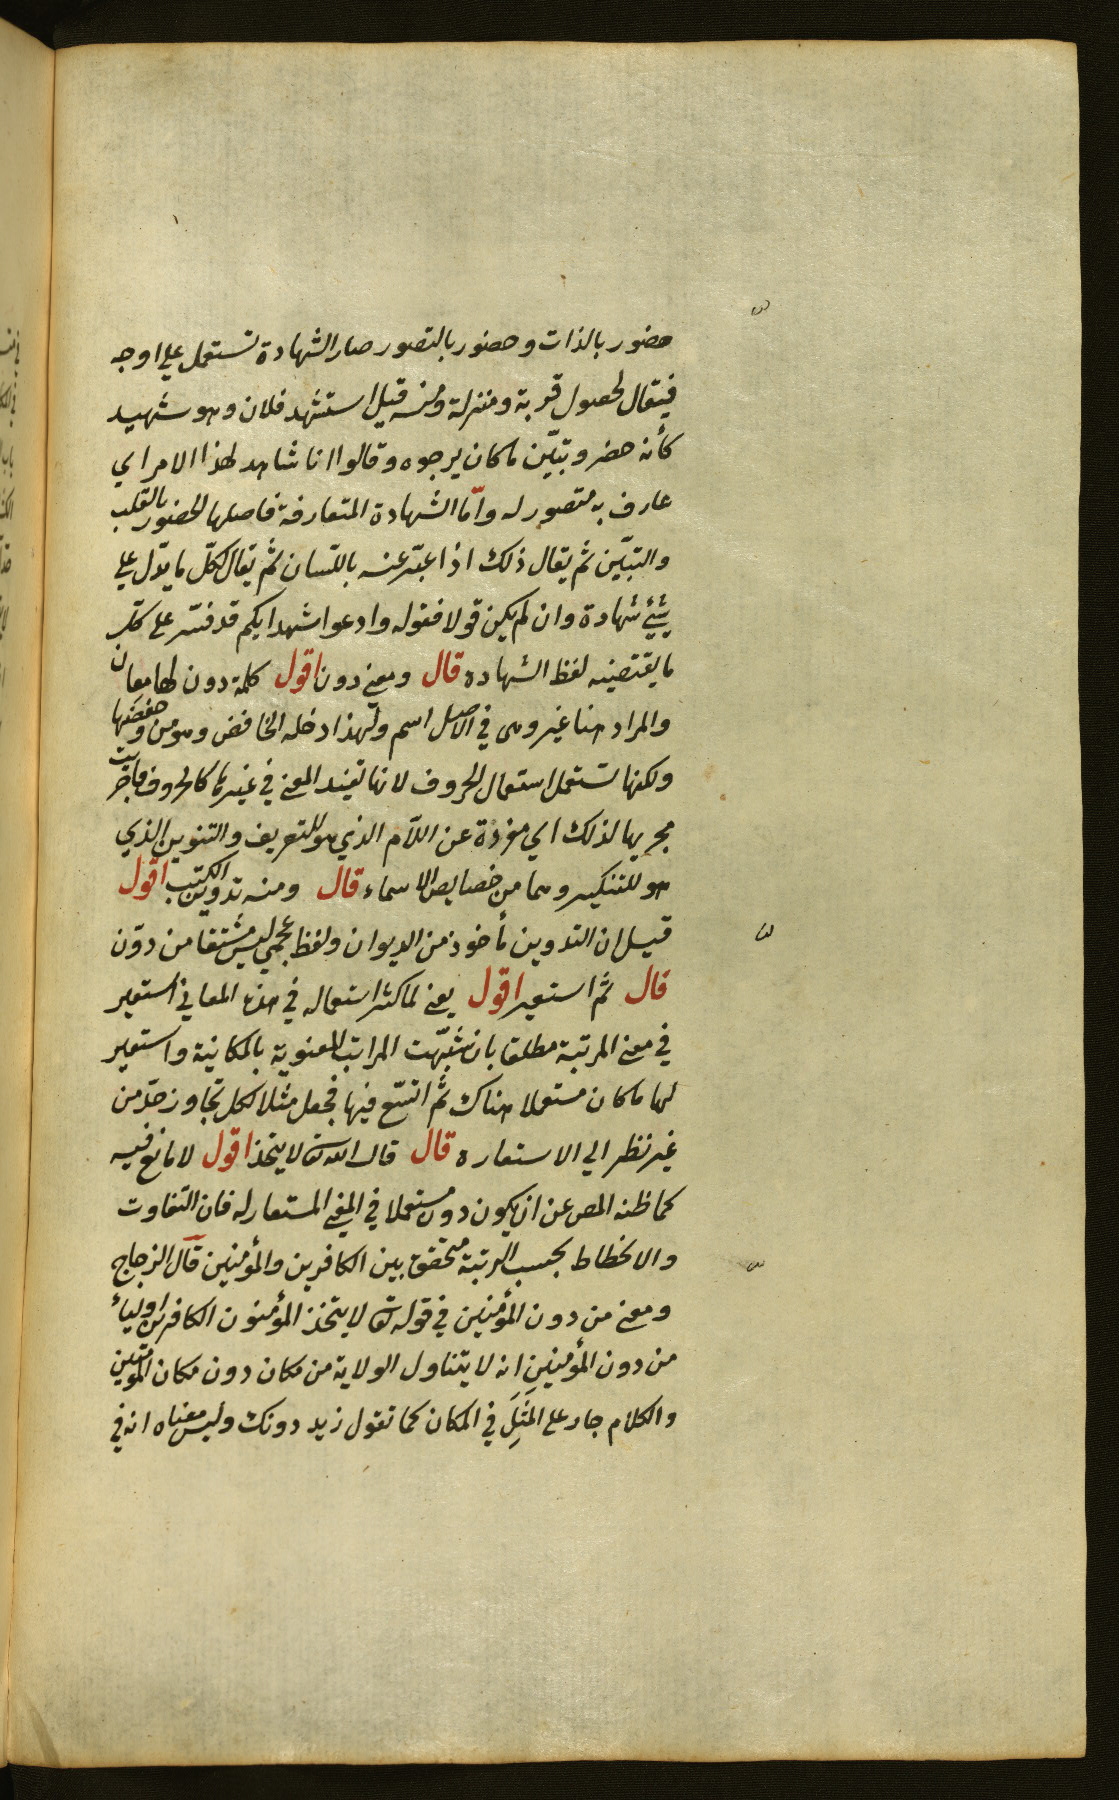 حضور بالذات وحضور بالتصور صار الشهادة تستعمل علي اوجه
فيقال لحصول قربة ومنزلة ومنه قيل استشهد فلان وهو شهيد
كأنه حضر وتبيّن ما كان يرجوه وقالوا انا شاهد لهذا الامر اي
عارف به متصور له وامّا الشهادة المتعارفة فاصلها الحضور بالقلب
والتبيّن ثم يقال ذلك اذا عبّر عنه باللسان ثم يقال لكلّ ما يدلّ علي
شيئ شهادة وان لم يكن قولا فقوله وادعوا شهدايكم قد فسّر على كلّ
ما يقتضيه لفظ الشهاده قال ومعنى دون اقول كلمة دون لها معان
والمراد هنا غير وهى في الاصل اسم ولهذا دخله الخافض وهو من وحفضها
ولكنها تستعمل استعمال الحروف لانها تفيد المعنى في غيرها كالحروف فاجريت
مجريها لذلك اي مفردة عن اللام الذي هو للتعريف والتنوين الذي
هو للتنكير وهما من خصايص الاسماء قال ومنه تدوين الكتب اقول
قيل ان التدوين مأخوذ من الديوان ولفظ عجمي ليس مشتقا من دوّن
قال ثم استعير اقول يعنى لما كثر استعماله في هذه المعاني استعير
في معنى المرتبة مطلقا بان شبّهت المراتب المعنوية بالمكانية واستعير
لها ما كان مستعملا هناك ثم اتسّع فيها فجعل مثلا لكل تجاوز حدّ من
غير نظر الي الاستعاره قال قال الله تعا لا يتخذ اقول لا مانع فيه
كما ظنه المص عن ان يكون دون مستعملا في المعنى المستعار له فان التفاوت
والانحطاط بحسب الرتبة متحقق بين الكافرين والمؤمنين قال الزجاج
ومعنى من دون المؤمنين في قوله تعا لا يتخذ المؤمنون الكافرين اولياء
من دون المؤمنين انه لا يتناول الولاية من مكان دون مكان المؤمنين
والكلام جار على المَثَل في المكان كما تقول زيد دونك وليس معناه انه في